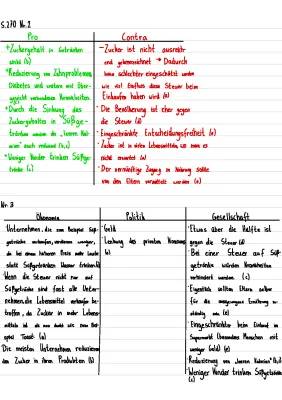 S.170 Nr. 2
Pro
+ Zuckergehalt in Getränken
sinkt (b)
* Reduzierung von Zahnproblemen,
Diabetes und weitere mit Über-
gewicht verbundenen Krankheiten
* Durch die Sinkung des
Zuckergehalts in Süßge-
tränken werden die "leeren Kal-
orien" auch reduziert (b,c)
* Weniger Kinder trinken Süßge-
tränke (c)
Contra
- Zucker ist nicht ausreich-
end gekennzeichnet → Dadurch
kann schlechter eingeschätzt werden
wie viel Einfluss diese Steuer beim
Einkaufen haben wird (a)
* Die Bevölkerung ist eher gegen
die Steuer (d)
* Eingeschränkte Entscheidungsfreiheit (e)
* Zucker ist in vielen Lebensmitteln, wo man es
nicht erwartet (a)
* Der vernünftige Zugang zu Nahrung sollte
von den Eltern vermittelt werden (e)
Nr. 3
Ökonomie
* Unternehmen, die zum Beispiel Süß-
getränke verkaufen, verdienen weniger,
da bei einem höheren Preis mehr Leute
statt Süßgetränken Wasser trinken
* Wenn die Steuer nicht nur auf
Süßgetränke sind fast alle Unter-
nehmen, die Lebensmittel verkaufen be-
troffen, da Zucker in mehr Lebens-
mitteln ist als man denkt wie zum Bei-
spiel Toast (a)
* Die meisten Unternehmen reduzieren
den Zucker in ihren Produkten (b)
Politik
* Geld
* Lenkung des privaten Konsums
Gesellschaft
* Etwas über die Hälfte ist
gegen die Steuer (d)
* Bei einer Steuer auf Süß-
getränke würden Krankheiten
verhindert werden (c)
* Eigentlich sollten Eltern selber
für die Ernährung
sein (e)
* Eingeschränkter beim Einkauf im
Supermarkt (besonders Menschen mit
weniger Geld) (e)
* Reduzierung von "leeren Kalorien"
* Weniger Kinder trinken Süßgetränke
(c)